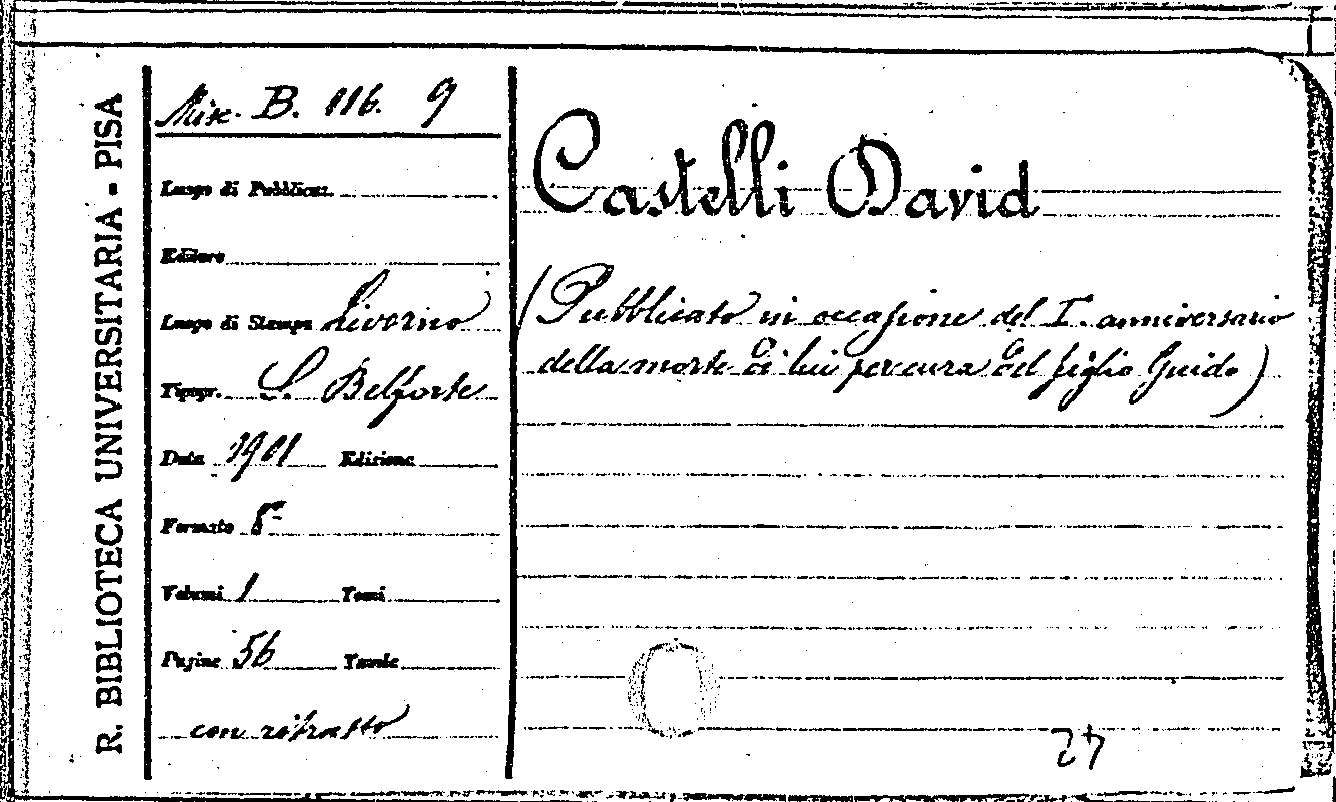 R. BIBLIOTECA UNIVERSITARIA - PISA
Misc. B. 116. 9
Luogo di Pubblicaz.
Editore
Luogo di Stampa Livorno
Tipogr. S. Belforte
Data 1901 Edizione
Formato 8º
Volumi 1 Tomi
Pagine 56 Tavole
con ritratto
Castelli David
(Pubblicato in occasione del I. anniversario
della morte di lui per cura del figlio Guido)